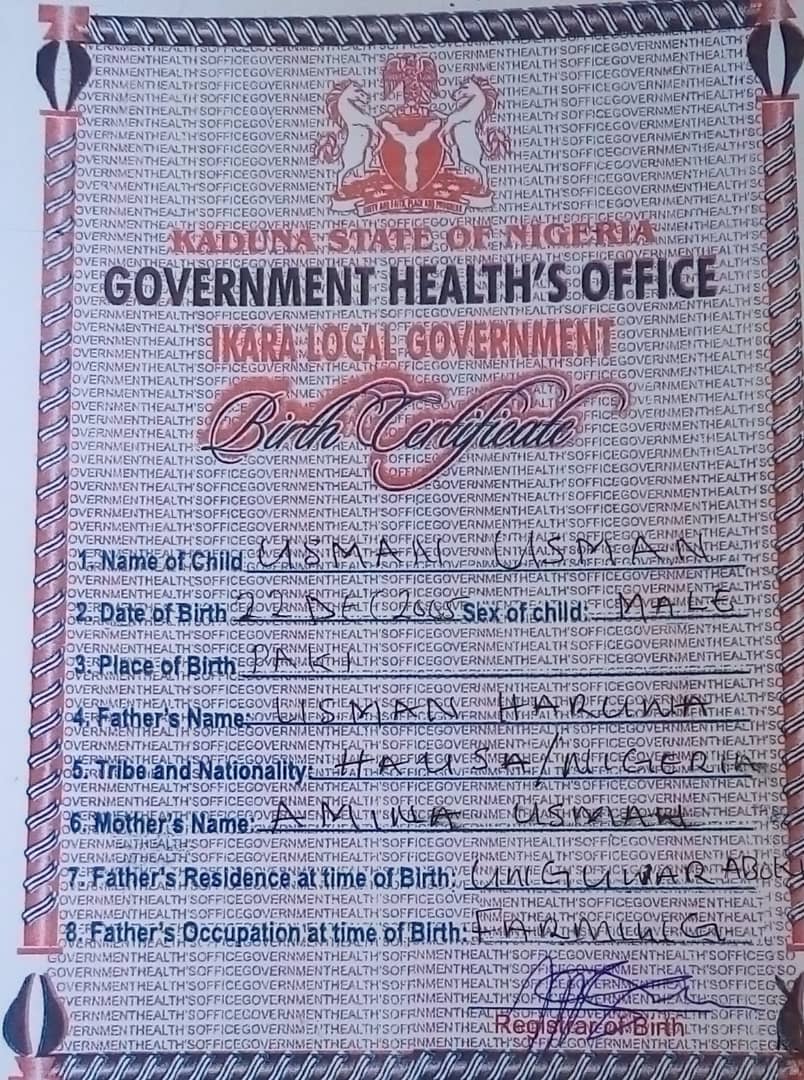 UNITY AND FAITH, PEACE AND PROGRESS
KADUNA STATE OF NIGERIA
GOVERNMENT HEALTH'S OFFICE
IKARA LOCAL GOVERNMENT
Birth Certificate
1. Name of Child USMAN USMAN
2. Date of Birth 22 DEC 2005 Sex of child: MALE
3. Place of Birth PAKI
4. Father's Name: USMAN HARUNA
5. Tribe and Nationality: HAUSA/NIGERIA
6. Mother's Name: AMINA USMAN
7. Father's Residence at time of Birth: UNGUWAR ABOKI
8. Father's Occupation at time of Birth: FARMING
Registrar of Birth